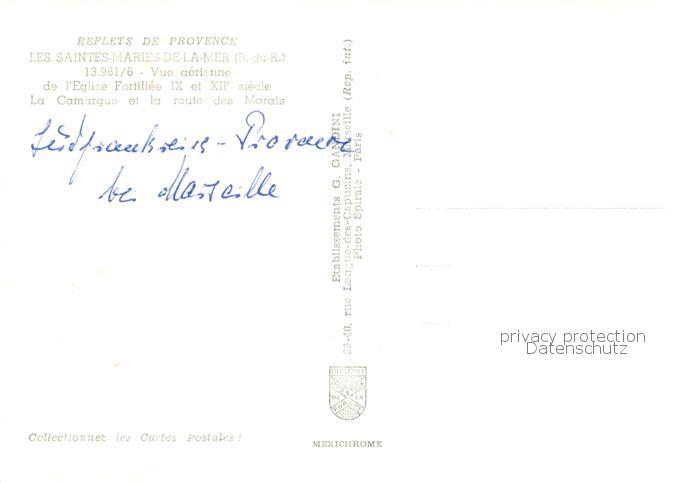 REFLETS DE PROVENCE
LES SAINTES-MARIES-DE-LA-MER (B.-du-R.)
13.961/6 - Vue aérienne
de l'Eglise Fortifiée IX et XIIe siècle
La Camargue et la route des Marais
Südfrankreich - Provence
bei Marseille
Etablissements G. GANDINI
38-40, rue Longue-des-Capucins, Marseille (Rep. int.)
Photo Spirale - Paris
privacy protection
Datenschutz
Collectionnez les Cartes Postales !
MEXICHROME